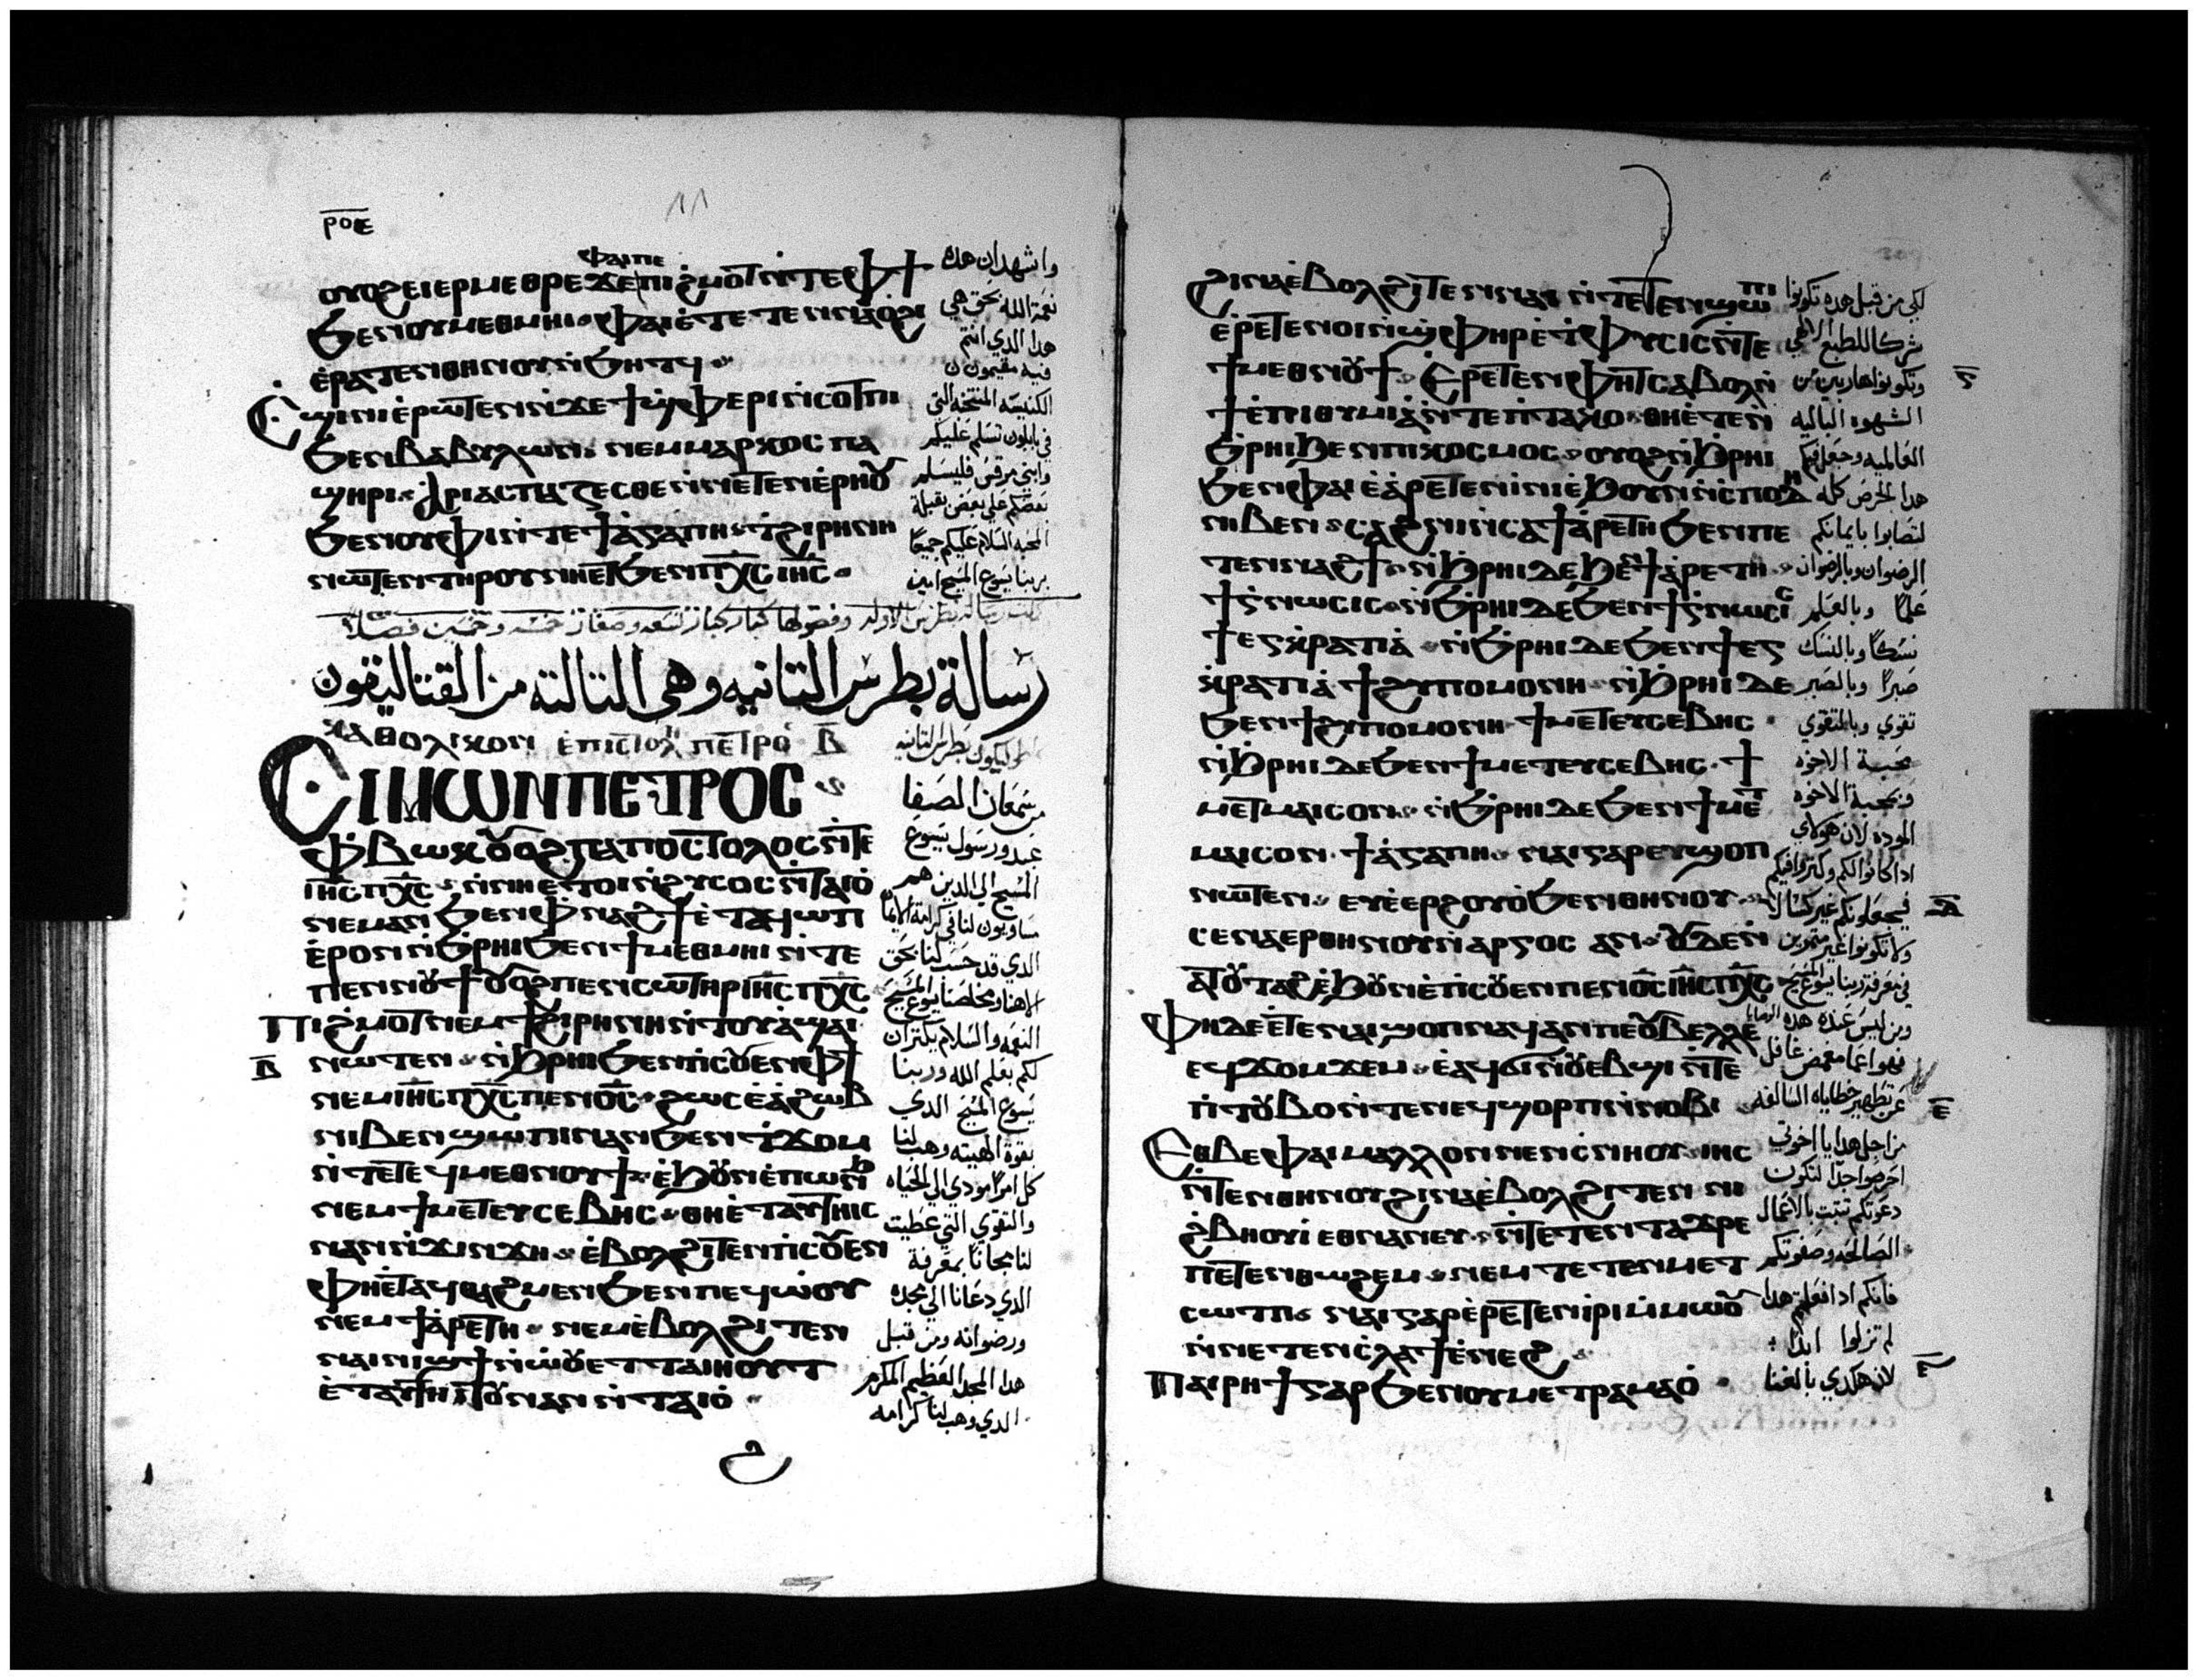 ⲣⲟⲉ
ⲫⲁⲓⲡⲉ
ⲟⲩⲟϩ ⲉⲓⲉⲣⲙⲉⲑⲣⲉ ϫⲉ ⲡⲓϩⲙⲟⲧ ⲛ̀ⲧⲉ ⲫϯ
ϧⲉⲛ ⲟⲩⲙⲉⲑⲙⲏⲓ ⲫⲁⲓ ⲉ̀ⲧⲉⲧⲉⲛⲛⲁⲟ̀ϩⲓ
ⲉ̀ⲣⲁⲧⲉⲛⲑⲏⲛⲟⲩ ⲛ̀ϧⲏⲧϥ
Ⲥϣⲓⲛⲓ ⲉ̀ⲣⲱⲧⲉⲛ ⲛ̀ϫⲉ ϯϣ̀ⲫⲉⲣⲓ ⲛ̀ⲥⲟⲧⲡⲓ
ϧⲉⲛ ⲃⲁⲃⲩⲗⲱⲛ ⲛⲉⲙ ⲙⲁⲣⲕⲟⲥ ⲡⲁ
ϣⲏⲣⲓ ⲁⲣⲓⲁⲥⲡⲁⲍⲉⲥⲑⲉ ⲛ̀ⲛⲉⲧⲉⲛⲉ̀ⲣⲏⲟⲩ
ϧⲉⲛ ⲟⲩⲫⲓ ⲛ̀ⲧⲉ ϯⲁ̀ⲅⲁⲡⲏ ⲧ̀ϩⲓⲣⲏⲛⲏ
ⲛⲱⲧⲉⲛ ⲧⲏⲣⲟⲩ ⲛⲏⲉⲧϧⲉⲛ ⲡⲭ̅ⲥ̅ ⲓⲏ̅ⲥ̅
واشهد ان هده
نعمة الله بحق هي
هدا الدي انتم
فيه مقيمون
الكنيسه المنتخبه التي
في بابلون تسلم عليكم
وابني مرقس فليسلم
بعضكم على بعض بقبلة
المحبه السلام عليكم جميعا
بربنا يسوع المسيح امين
رسالة بطرس التانيه وهي التالته من القتاليقون
ⲕⲁⲑⲟⲗⲓⲕⲟⲛ ⲉ̀ⲡⲓⲥⲧⲟⲗⲏ ⲡⲉⲧⲣⲟⲩ ⲃ̅
Ⲥⲓⲙⲱⲛ ⲡⲉⲧⲣⲟⲥ
ⲫ̀ⲃⲱⲕ ⲟⲩⲟϩ ⲡⲁⲡⲟⲥⲧⲟⲗⲟⲥ ⲛ̀ⲧⲉ
ⲓⲏ̅ⲥ̅ ⲡⲭ̅ⲥ̅ ⲛ̀ⲛⲏⲉⲧⲟⲓ ⲛ̀ϩⲩⲥⲟⲥ ⲛ̀ⲧⲁⲓⲟ
ⲛⲉⲙⲁⲛ ϧⲉⲛ ⲫ̀ⲛⲁϩϯ ⲉ̀ⲧⲁϥⲱⲡ
ⲉ̀ⲣⲟⲛ ⲛ̀ϧⲣⲏⲓ ϧⲉⲛ ϯⲙⲉⲑⲙⲏⲓ ⲛ̀ⲧⲉ
ⲡⲉⲛⲛⲟⲩϯ ⲟⲩⲟϩ ⲡⲉⲛⲥⲱⲧⲏⲣ ⲓⲏ̅ⲥ̅ ⲡⲭ̅ⲥ̅
Ⲡⲓϩⲙⲟⲧ ⲛⲉⲙ ⲧ̀ϩⲓⲣⲏⲛⲏ ⲛ̀ⲧⲟⲩⲁ̀ϣⲁⲓ
ⲃ̅ ⲛⲱⲧⲉⲛ ⲛ̀ϧⲣⲏⲓ ϧⲉⲛ ⲡ̀ⲥⲟⲩⲉⲛ ⲫϯ
ⲛⲉⲙ ⲓⲏ̅ⲥ̅ ⲡⲭ̅ⲥ̅ ⲡⲉⲛⲟ̅ⲥ̅ ϩⲱⲥ ⲉ̀ⲁ̀ϩⲱⲃ
ⲛⲓⲃⲉⲛ ϣⲱⲡⲓ ⲛⲁⲛ ϧⲉⲛ ⲧ̀ϫⲟⲙ
ⲛ̀ⲧⲉ ⲧⲉϥⲙⲉⲑⲛⲟⲩϯ ⲉ̀ϧⲟⲩⲛ ⲉ̀ⲡⲱⲛϧ
ⲛⲉⲙ ϯⲙⲉⲧⲉⲩⲥⲉⲃⲏⲥ ⲑⲏⲉ̀ⲧⲁⲩⲧⲏⲓⲥ
ⲛⲁⲛ ⲛ̀ϫⲓⲛϫⲏ ⲉ̀ⲃⲟⲗϩⲓⲧⲉⲛ ⲡ̀ⲥⲟⲩⲉⲛ
ⲫⲏⲉⲧⲁϥⲑⲁϩⲙⲉⲛ ϧⲉⲛ ⲡⲉϥⲱ̀ⲟⲩ
ⲛⲉⲙ ϯⲁ̀ⲣⲉⲧⲏ ⲛⲉⲙ ⲉ̀ⲃⲟⲗϩⲓⲧⲉⲛ
ⲛⲁⲓⲛⲓϣϯ ⲛ̀ⲱ̀ⲟⲩ ⲉⲧⲧⲁⲓⲏⲟⲩⲧ
ⲉ̀ⲧⲁϥⲧⲏⲓⲧⲟⲩ ⲛⲁⲛ ⲛ̀ⲧⲁⲓⲟ̀
من سمعان الصفا
عبد ورسول يسوع
المسيح الى الدين هم
مساوبون لنا في كرامة الايمان
الدي قد حسب لنا بحق
الاهنا ومخلصنا يسوع المسيح
النعمه والسلام يكتران
لكم بعلم الله وربنا
يسوع المسيح الدي
بقوة الهيته وهب لنا
كل امرا مودي الى الحياه
والتقوي التي عطيت
لنا مجانا بمعرفة
الدي دعانا الى مجده
ورضوانه ومن قبل
هدا المجد العظيم المكرم
الدي وهب لنا كرامه
ϩⲓⲛⲁ ⲉ̀ⲃⲟⲗϩⲓⲧⲉⲛ ⲛⲁⲓ ⲛ̀ⲧⲉⲧⲉⲛϣⲱⲡⲓ
ⲉ̀ⲣⲉⲧⲉⲛⲟⲓ ⲛ̀ϣ̀ⲫⲏⲣ ⲉ̀ϯⲫⲩⲥⲓⲥ ⲛ̀ⲧⲉ
ϯⲙⲉⲑⲛⲟⲩϯ Ⲉⲣⲉⲧⲉⲛⲫⲏⲧ ⲥⲁⲃⲟⲗ ⲛ̀
ϯⲉ̀ⲡⲓⲑⲩⲙⲓⲁ ⲛ̀ⲧⲉ ⲡ̀ⲧⲁⲕⲟ ⲑⲏⲉ̀ⲧⲉⲛ̀
ϧ̀ⲣⲏⲓ ϧⲉⲛ ⲡⲓⲕⲟⲥⲙⲟⲥ ⲟⲩⲟϩ ⲛ̀ϧⲣⲏⲓ
ϧⲉⲛ ⲫⲁⲓ ⲉ̀ⲁ̀ⲣⲉⲧⲉⲛⲓ̀ⲛⲓ ⲉ̀ϧⲟⲩⲛ ⲛ̀ⲥⲡⲟⲩⲇⲏ
ⲛⲓⲃⲉⲛ ⲥⲁϩⲛⲓ ⲛ̀ⲥⲁ ϯⲁ̀ⲣⲉⲧⲏ ϧⲉⲛ ⲡⲉ
ⲧⲉⲛⲛⲁϩϯ ⲛ̀ϧⲣⲏⲓ ⲇⲉ ϧⲉⲛ ϯⲁ̀ⲣⲉⲧⲏ
ϯⲅ̀ⲛⲱⲥⲓⲥ ⲛ̀ϧⲣⲏⲓ ⲇⲉ ϧⲉⲛ ϯⲅ̀ⲛⲱⲥⲓⲥ
ϯⲉⲅⲕ̀ⲣⲁⲧⲓⲁ̀ ⲛ̀ϧⲣⲏⲓ ⲇⲉ ϧⲉⲛ ϯⲉⲅ
ⲕ̀ⲣⲁⲧⲓⲁ̀ ϯϩⲩⲡⲟⲙⲟⲛⲏ ⲛ̀ϧⲣⲏⲓ ⲇⲉ
ϧⲉⲛ ϯϩⲩⲡⲟⲙⲟⲛⲏ ϯⲙⲉⲧⲉⲩⲥⲉⲃⲏⲥ
ⲛ̀ϧⲣⲏⲓ ⲇⲉ ϧⲉⲛ ϯⲙⲉⲧⲉⲩⲥⲉⲃⲏⲥ ϯ
ⲙⲉⲧⲙⲁⲓⲥⲟⲛ ⲛ̀ϧⲣⲏⲓ ⲇⲉ ϧⲉⲛ ϯⲙⲉⲧ
ⲙⲁⲓⲥⲟⲛ ϯⲁ̀ⲅⲁⲡⲏ ⲛⲁⲓ ⲅⲁⲣ ⲉⲩϣⲟⲡ
ⲛⲱⲧⲉⲛ ⲉⲩⲉ̀ⲉⲣϩⲟⲩⲟ̀ ϧⲉⲛ ⲑⲏⲛⲟⲩ
ⲥⲉⲛⲁⲉⲣⲑⲏⲛⲟⲩ ⲛ̀ⲁⲣⲅⲟⲥ ⲁⲛ ⲟⲩⲇⲉ ⲛ̀
ⲁⲧⲟⲩⲧⲁϩ ⲉ̀ϧⲟⲩⲛ ⲉ̀ⲡ̀ⲥⲟⲩⲉⲛ ⲡⲉⲛⲟ̅ⲥ̅ ⲓⲏ̅ⲥ̅ ⲡⲭ̅ⲥ̅
Ⲫⲏ ⲇⲉ ⲉ̀ⲧⲉ ⲛⲁⲓ ϣⲟⲡ ⲛⲁϥ ⲁⲛ ⲡⲉ ⲟⲩⲃⲉⲗⲗⲉ
ⲉϥϫⲟⲙϫⲉⲙ ⲉ̀ⲁϥϭⲓ ⲛ̀ⲟⲩⲉⲃϣⲓ ⲛ̀ⲧⲉ
ⲡ̀ⲧⲟⲩⲃⲟ ⲛ̀ⲧⲉ ⲛⲉϥϣⲟⲣⲡ ⲛ̀ⲛⲟⲃⲓ
Ⲉⲑⲃⲉ ⲫⲁⲓ ⲙⲁⲗⲗⲟⲛ ⲛⲉⲛⲥ̀ⲛⲏⲟⲩ ⲓⲏⲥ
ⲛ̀ⲧⲉⲛⲑⲏⲛⲟⲩ ϩⲓⲛⲁ ⲉ̀ⲃⲟⲗϩⲓⲧⲉⲛ ⲛⲓ
ϩ̀ⲃⲏⲟⲩⲓ̀ ⲉⲑⲛⲁⲛⲉⲩ ⲛ̀ⲧⲉⲧⲉⲛⲧⲁϫⲣⲉ
ⲡⲉⲧⲉⲛⲑⲱϩⲉⲙ ⲛⲉⲙ ⲧⲉⲧⲉⲛⲙⲉⲧ
ⲥⲱⲧⲡ ⲛⲁⲓ ⲅⲁⲣ ⲉ̀ⲣⲉⲧⲉⲛⲓⲣⲓ ⲙ̀ⲙⲱⲟⲩ
ⲛ̀ⲛⲉⲧⲉⲛⲥ̀ⲗⲁϯ ⲉ̀ⲛⲉϩ
Ⲡⲁⲓⲣⲏϯ ⲅⲁⲣ ϧⲉⲛ ⲟⲩⲙⲉⲧⲣⲁⲙⲁⲟ̀
لكي من قبل هده تكونوا
شركا للطبع الالهي
وتكونوا هاربين من
الشهوه الباليه
العالميه وجعل فيكم
هدا الحرص كله
لتصابوا بايمانكم
الرضوان وبالرضوان
علما وبالعلم
نسكا وبالنسك
صبرا وبالصبر
تقوي وبالتقوي
محبة الاخوه
وبمحبة الاخوه
الموده لان هولاي
ادا كانوا لكم وكتروا فيكم
فيجعلونكم غير كسالا
ولا تكونوا غير متمرين
في معرفة ربنا يسوع المسيح
ومن ليس عنده هده
فهو اعما مغمض غافل
عن تطهير خطاياه السالفه
من اجل هدا يا اخوتي
احرصوا جدا لتكون
دعوتكم تتبت بالاعمال
الصالحه وصفوتكم
فانكم ادا فعلتم هدا
لم تزلوا ابدا
لان هكدي بالغنا
ⲇ̅
ⲉ̅